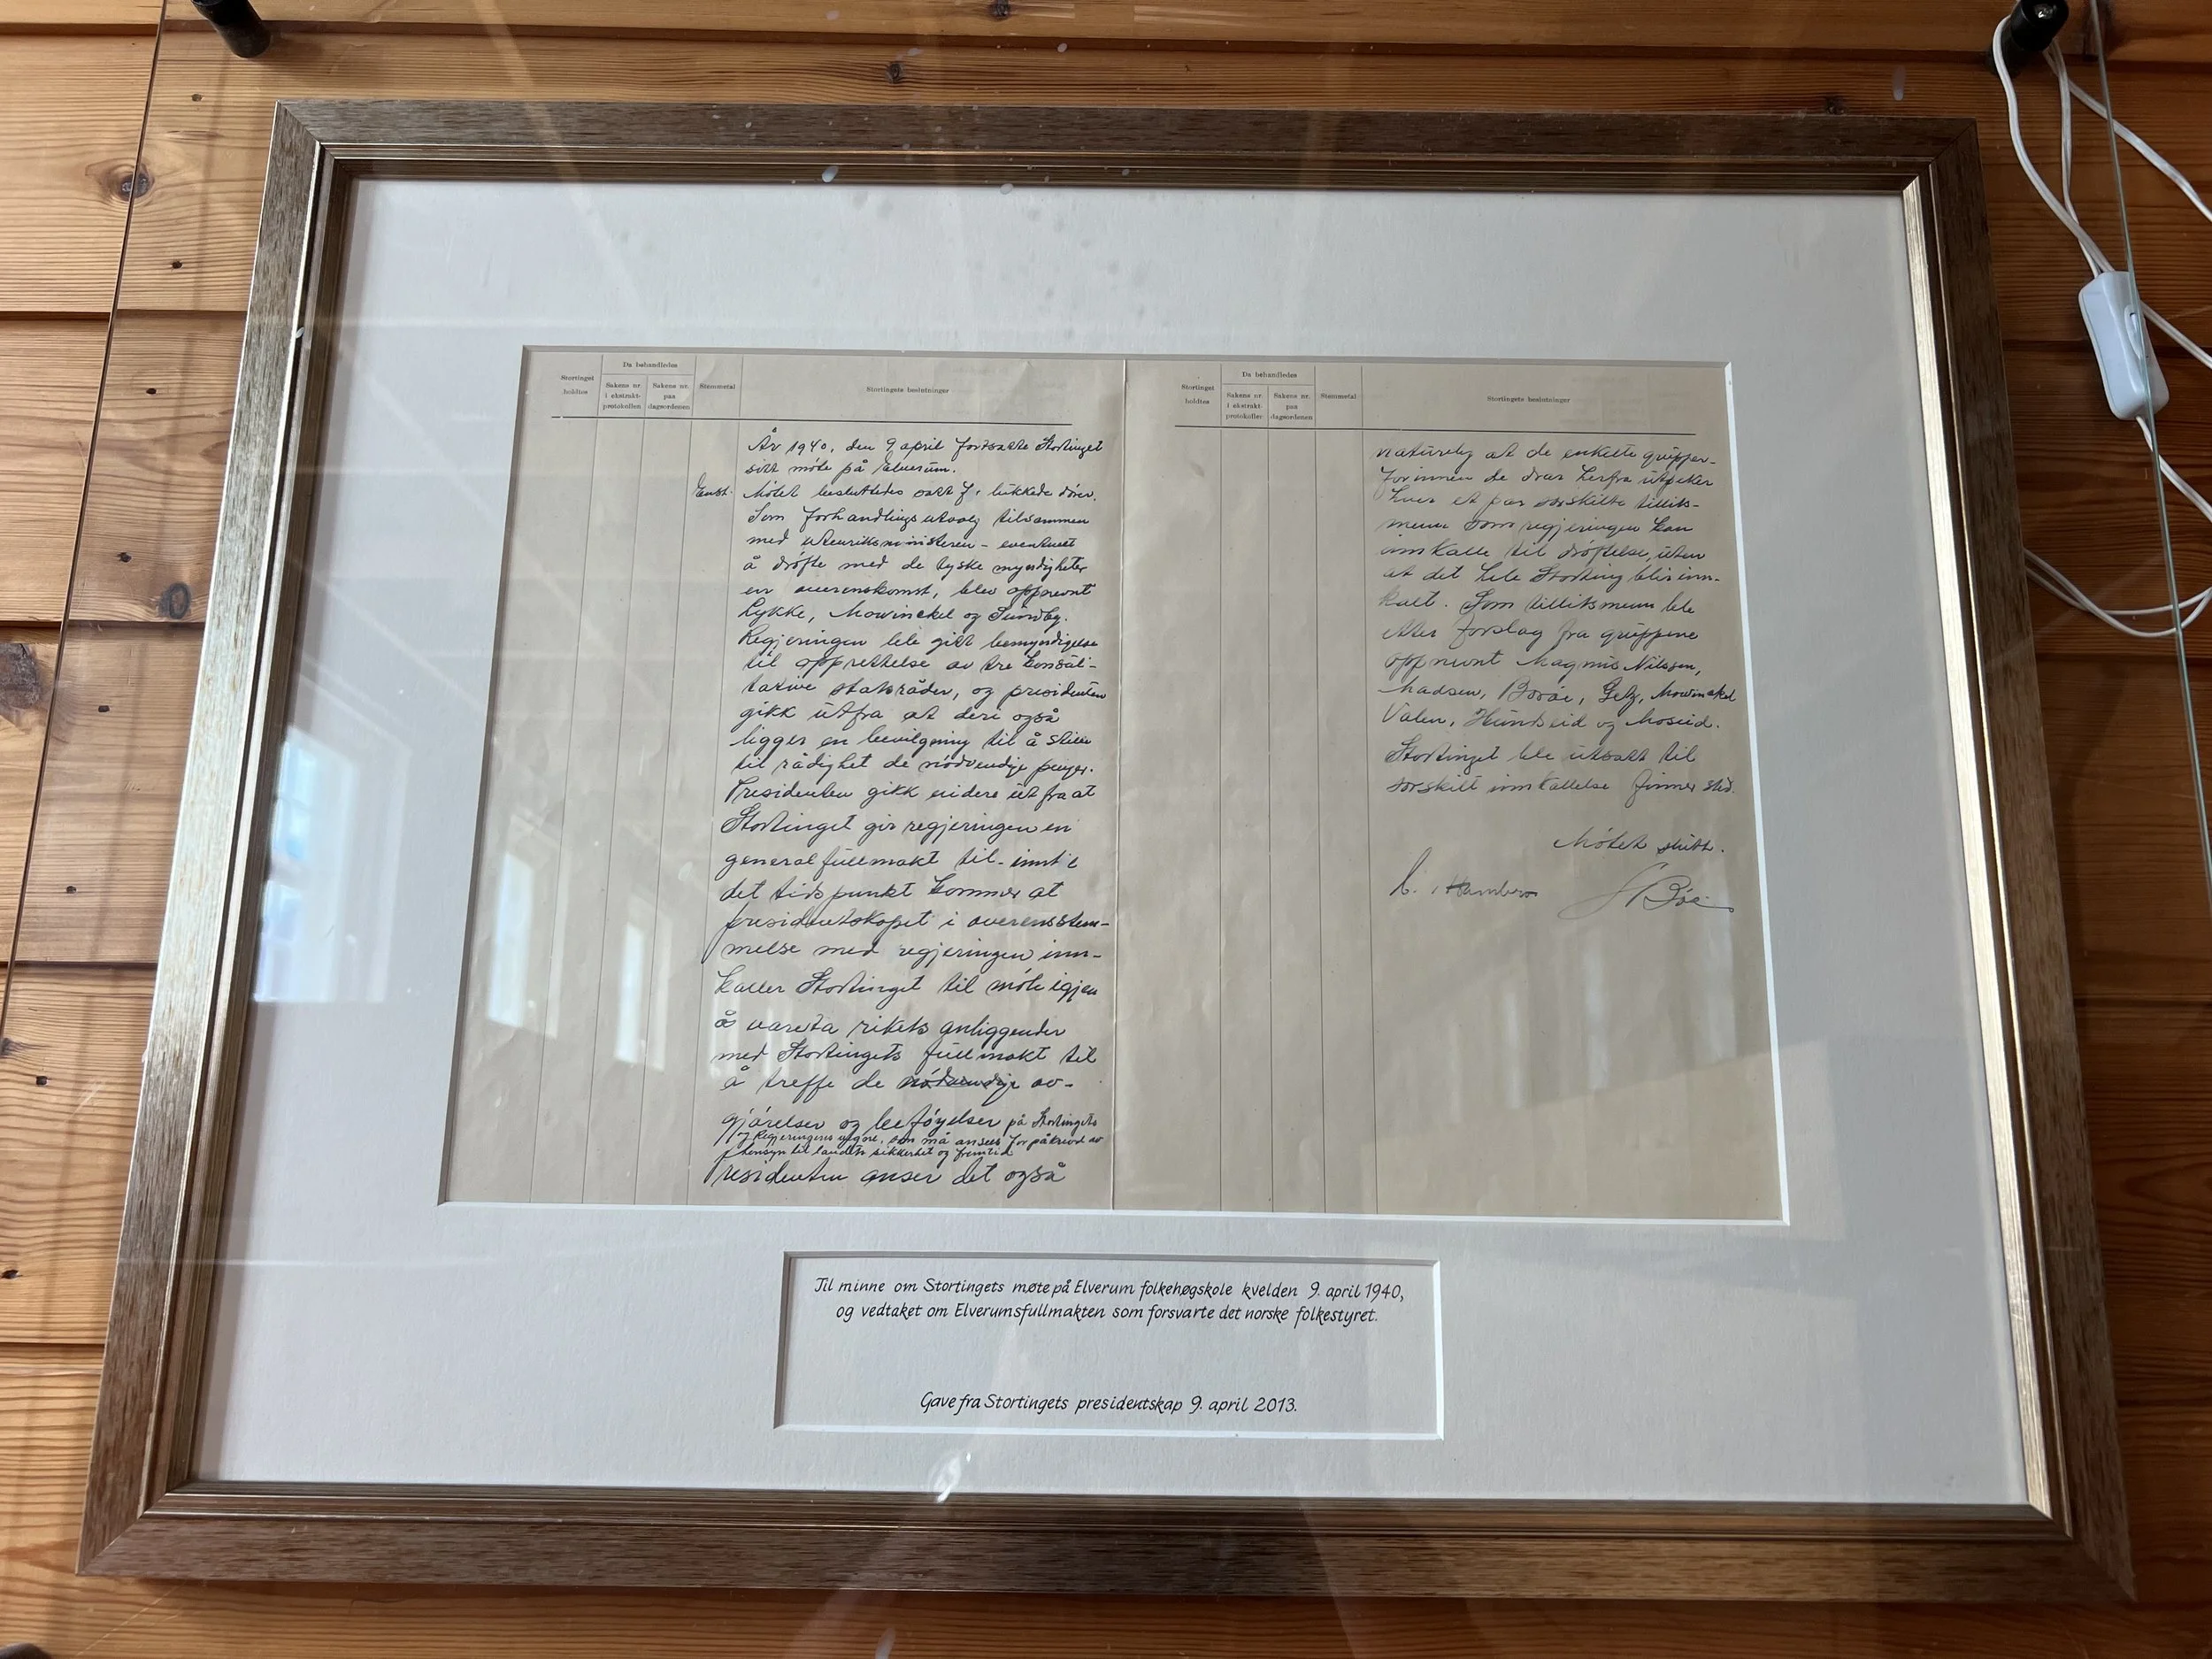 Stortinget
holdtes
Da behandledes
Sakens nr.
i ekstrakt-
protokollen
Sakens nr.
paa
dagsordenen
Stemmetal
Stortingets beslutninger
År 1940, den 9 april fortsatte Stortinget
sitt møte på Elverum.
Enst. Møtet besluttedes satt f. lukkede dører.
Som forhandlingsutvalg tilsammen
med utenriksministeren – eventuelt
å drøfte med de tyske myndigheter
en overenskomst, blev oppnevnt
Lykke, Mowinckel og Sundby.
Regjeringen ble gitt bemyndigelse
til opprettelse av tre konsul-
tative statsråder, og presidenten
gikk ut fra at deri også
ligger en bevilgning til å stille
til rådighet de nødvendige penger.
Presidenten gikk videre ut fra at
Stortinget gir regjeringen en
generalfullmakt til - inntil
det tidspunkt kommer at
presidentskapet i overensstem-
melse med regjeringen inn-
kaller Stortinget til møte igjen
å vareta rikets anliggender
med Stortingets fullmakt til
å treffe de nødvendige av-
gjørelser og beføyelser på Stortingets
og Regjeringens vegne, som må ansees for påkrevd av
hensyn til landets sikkerhet og fremtid
Presidenten anser det også
Stortinget
holdtes
Da behandledes
Sakens nr.
i ekstrakt-
protokollen
Sakens nr.
paa
dagsordenen
Stemmetal
Stortingets beslutninger
naturlig at de enkelte grupper
forinnen de drar herfra utpeker
hver et par særskilte tillits-
menn som regjeringen kan
innkalle til drøftelse, uten
at det hele Storting blir inn-
kalt. Som tillitsmenn ble
etter forslag fra gruppene
oppnevnt Magnus Nilssen,
Madsen, Mowinckel
Valen, Hundseid og Moseid.
Stortinget ble utsatt til
særskilt innkallelse finner sted.
Møtet slutt.
C. J. Hambro
Bøe
Til minne om Stortingets møte på Elverum folkehøgskole kvelden 9. april 1940,
og vedtaket om Elverumsfullmakten som forsvarte det norske folkestyret.
Gave fra Stortingets presidentskap 9. april 2013.